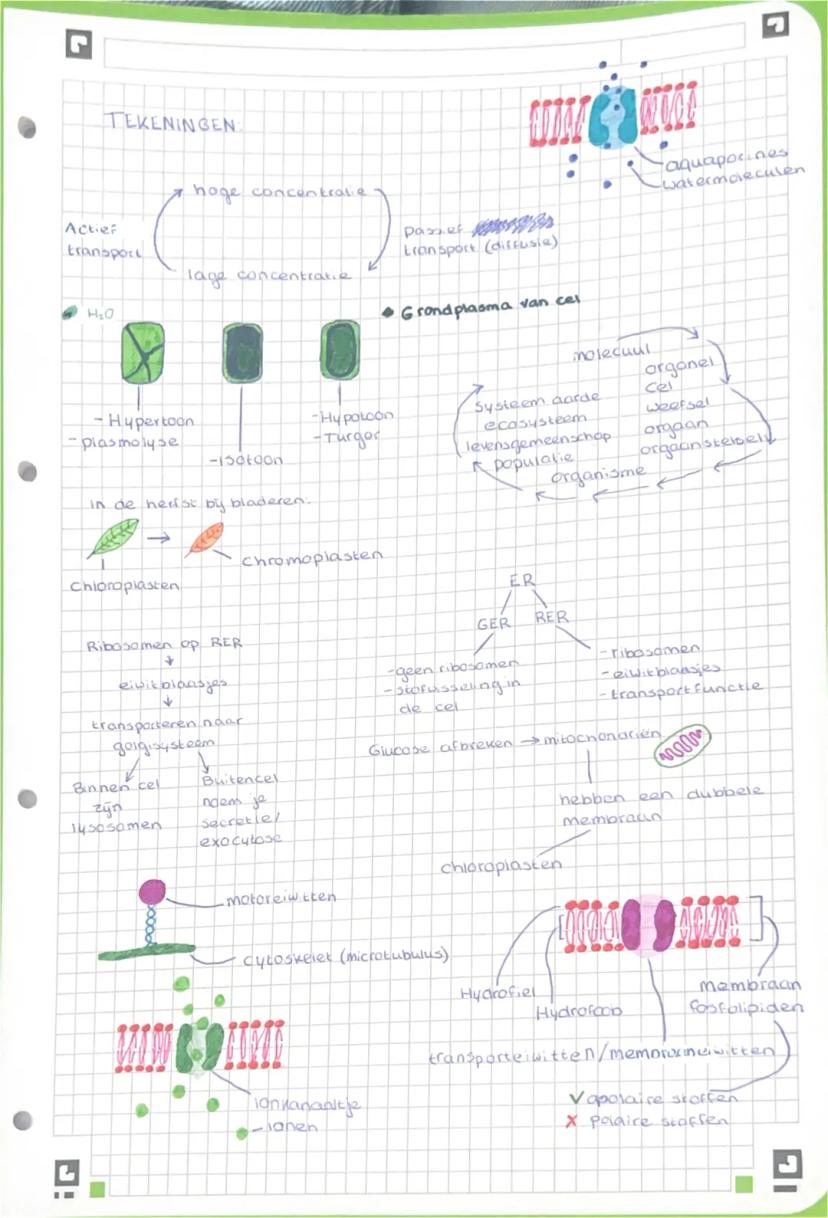 TEKENINGEN:
aquaporines
watermoleculen
hoge concentratie
Actief
transport
passief
transport (diffusie)
lage concentratie
H₂O
Grondplasma van cel
- Hypertoon
- plasmolyse
- isotoon
- Hypotoon
- Turgor
molecuul
organel
cel
weefsel
orgaan
orgaanstelsel
organisme
populatie
levensgemeenschap
ecosysteem
systeem aarde
in de herfst bij bladeren:
chloroplasten
chromoplasten
ER
GER RER
- geen ribosomen
- stofwisseling in
de cel
- ribosomen
- eiwitblaasjes
- transportfunctie
Ribosomen op RER
eiwitblaasjes
transporteren naar
golgisysteem
Binnen cel
zijn
lysosomen
Buitencel
noem je
secretie/
exocytose
Glucose afbreken → mitochondriën
hebben een dubbele
membraan
chloroplasten
motoreiwitten
cytoskelet (microtubulus)
ionkanaaltje
- ionen
Hydrofiel
Hydrofoob
membraan
fosfolipiden
transporteiwitten/membraaneiwitten
V apolaire stoffen
X polaire stoffen